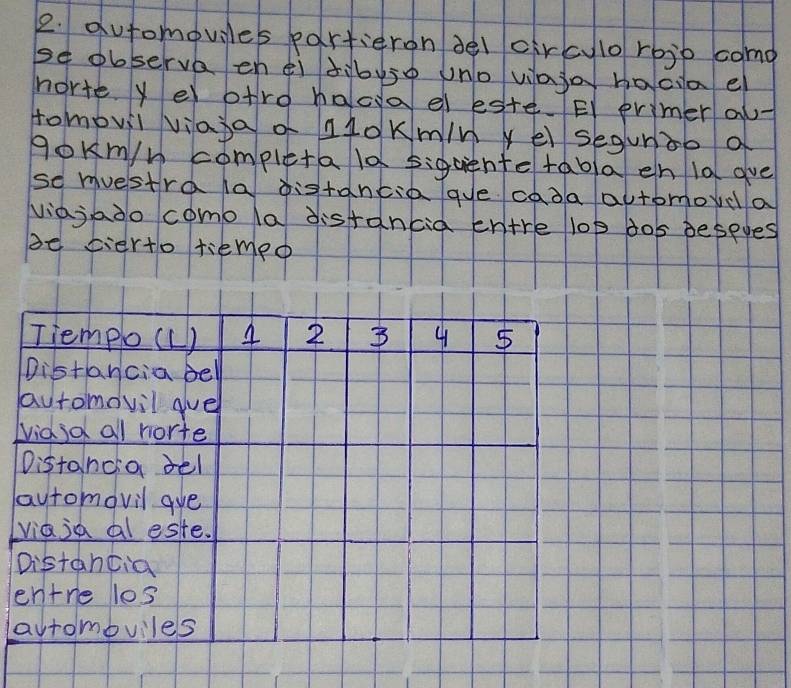 2. automoviles partieron del circulo rojo como
se observa en el dibujo uno viaja hacia el
norte y el otro hacia el este. El primer au-
tomovil viaja a 110Km/h y el segundo a
90Km/h completa la siguiente tabla en la que
se muestra la distancia que cada automovil a
viajado como la distancia entre los dos despues
de cierto tiempo
Tiempo (L) 1 2 3 4 5
Distancia del
automovil que
viaja al norte
Distancia del
automovil que
viaja al este.
Distancia
entre los
automoviles